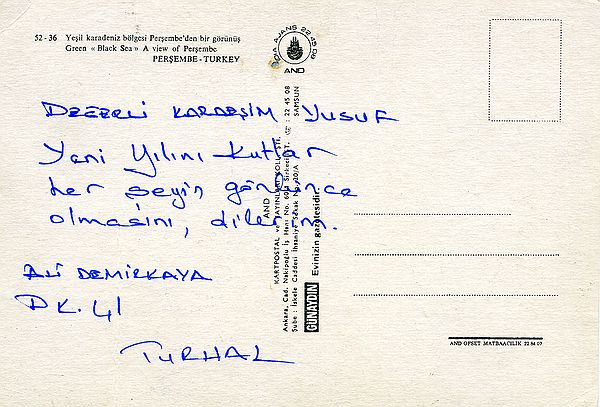 52 - 36 Yeşil karadeniz bölgesi Perşembe'den bir görünüş
Green « Black Sea » A view of Perşembe
PERŞEMBE - TURKEY
AJANS 22 45 08
AND
DEĞERLİ KARDEŞİM YUSUF
Yeni Yılını Kutlar
her şeyin gönlünce
olmasını, dilerim.
ALİ DEMİRKAYA
P.K. 41
TURHAL
AND
KARTPOSTAL ve YAYINLARI KOLL. ŞTİ.
Ankara, Cad. Nakipoğlu İş Hanı No. Sirkeci-İST. 22 45 08
Şube : İskele Caddesi İhsaniye Sokak No. 20/A SAMSUN
GÜNAYDIN Evinizin gazetesidir
AND OFSET MATBAACILIK 22 84 07